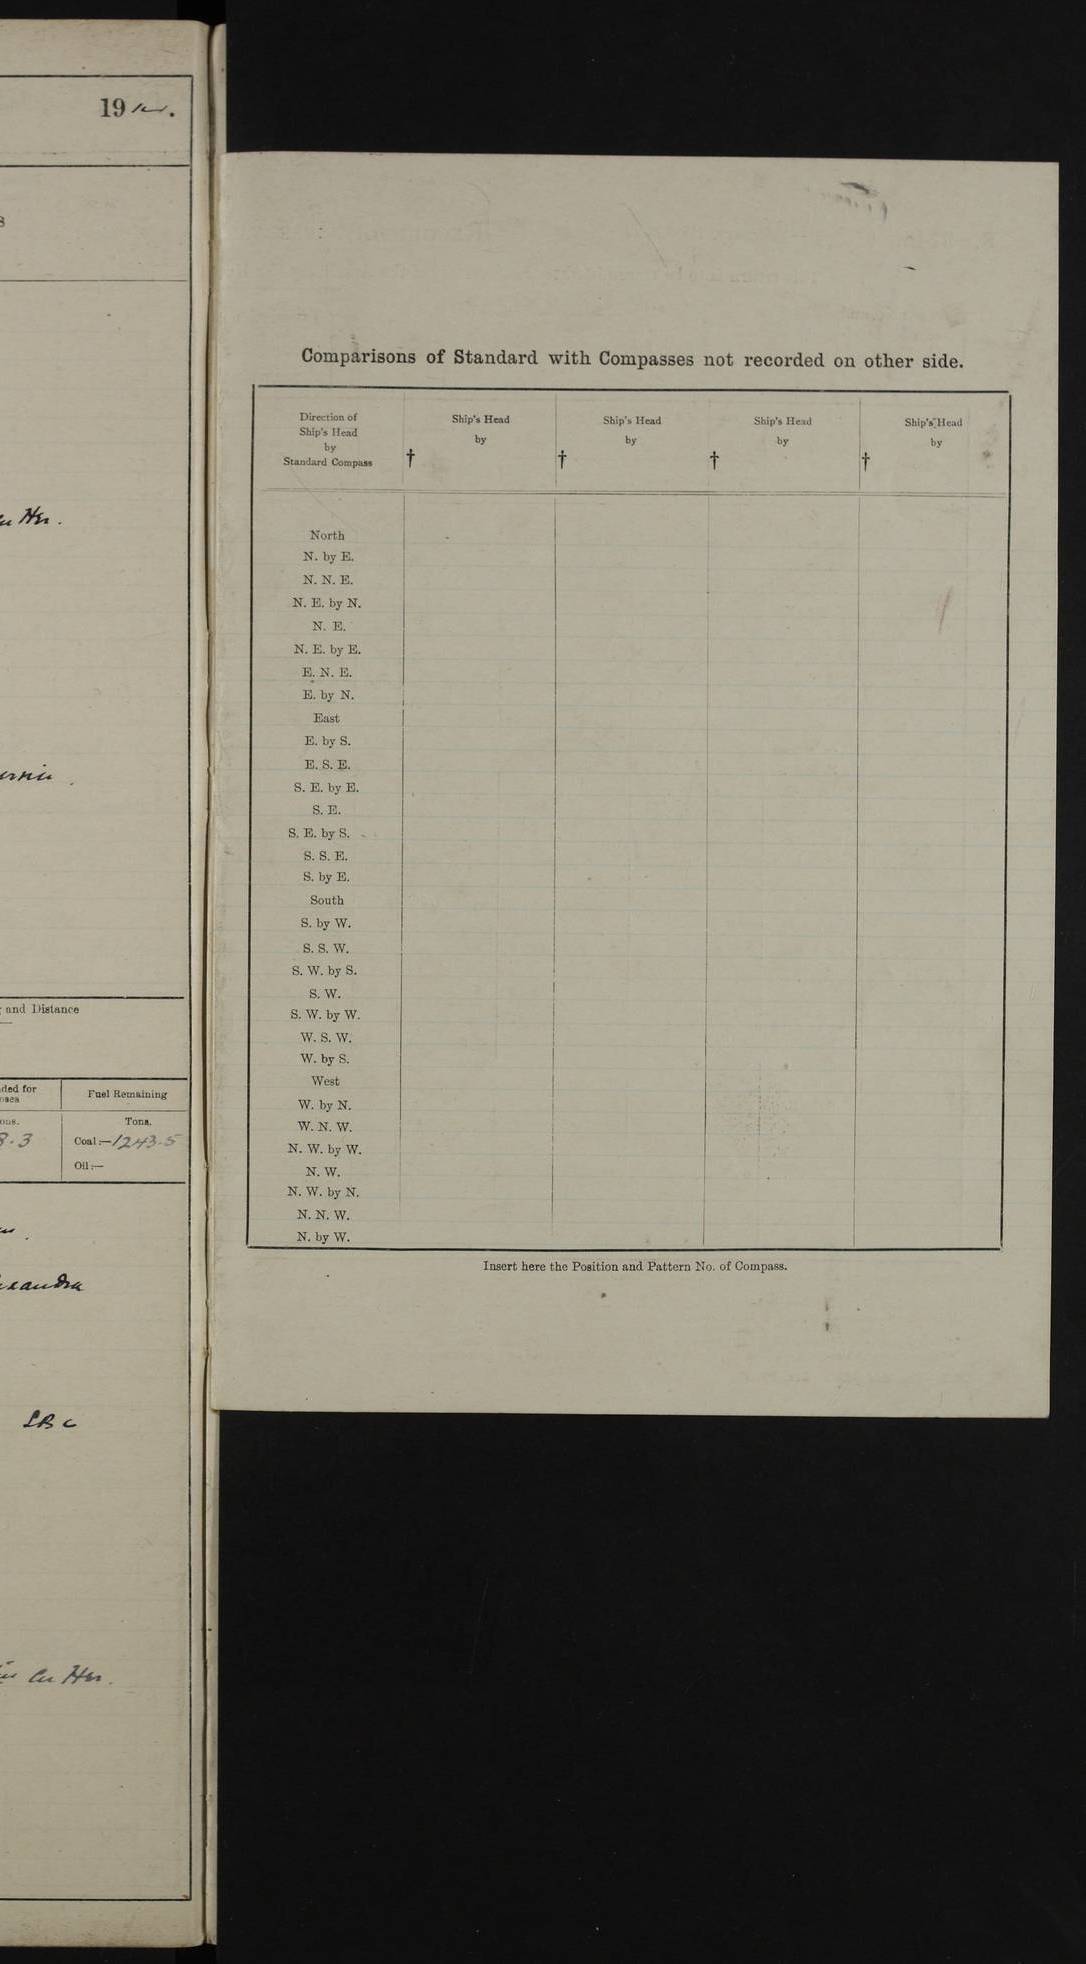 19
and Distance
ded for
Fuel Remaining
Tons.
8.3
Coal:—1243.5
Oil:—
LBC
Comparisons of Standard with Compasses not recorded on other side.
Direction of
Ship's Head
by
Standard Compass
† Ship's Head
by
† Ship's Head
by
† Ship's Head
by
† Ship's Head
by
North
N. by E.
N. N. E.
N. E. by N.
N. E.
N. E. by E.
E. N. E.
E. by N.
East
E. by S.
E. S. E.
S. E. by E.
S. E.
S. E. by S.
S. S. E.
S. by E.
South
S. by W.
S. S. W.
S. W. by S.
S. W.
S. W. by W.
W. S. W.
W. by S.
West
W. by N.
W. N. W.
N. W. by W.
N. W.
N. W. by N.
N. N. W.
N. by W.
Insert here the Position and Pattern No. of Compass.